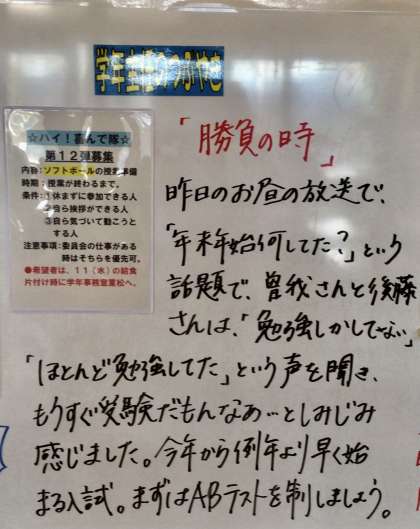 学年主任のつぶやき
☆ハイ！喜んで隊☆
第12弾募集
内容：ソフトボールの授業準備
時期：授業が終わるまで。
条件：①休まずに参加できる人
②自ら挨拶ができる人
③自ら気づいて動こうと
する人
注意事項：委員会の仕事がある
時はそちらを優先可。
●希望者は、11（水）の給食
片付け時に学年事務室重松へ。
「勝負の時」
昨日のお昼の放送で、
「年末年始何してた？」という
話題で、曽我さんと後藤
さんは、「勉強しかしてない」
「ほとんど勉強してた」という声を聞き、
もうすぐ受験だもんなあ…としみじみ
感じました。今年から例年より早く始
まる入試。まずはABテストを制しましょう。